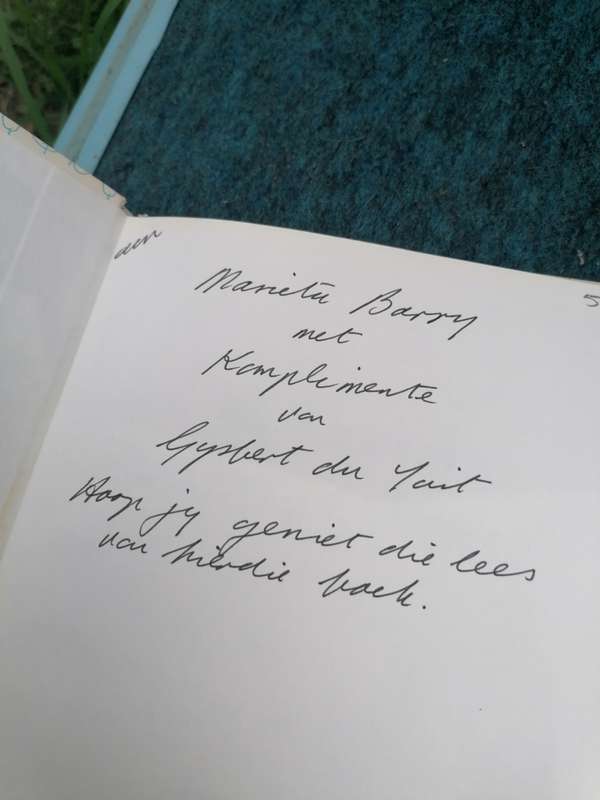 aan
5
Marietu Barry
met
Komplimente
van
Gysbert du Toit
Hoop jy geniet die lees
van hierdie boek.